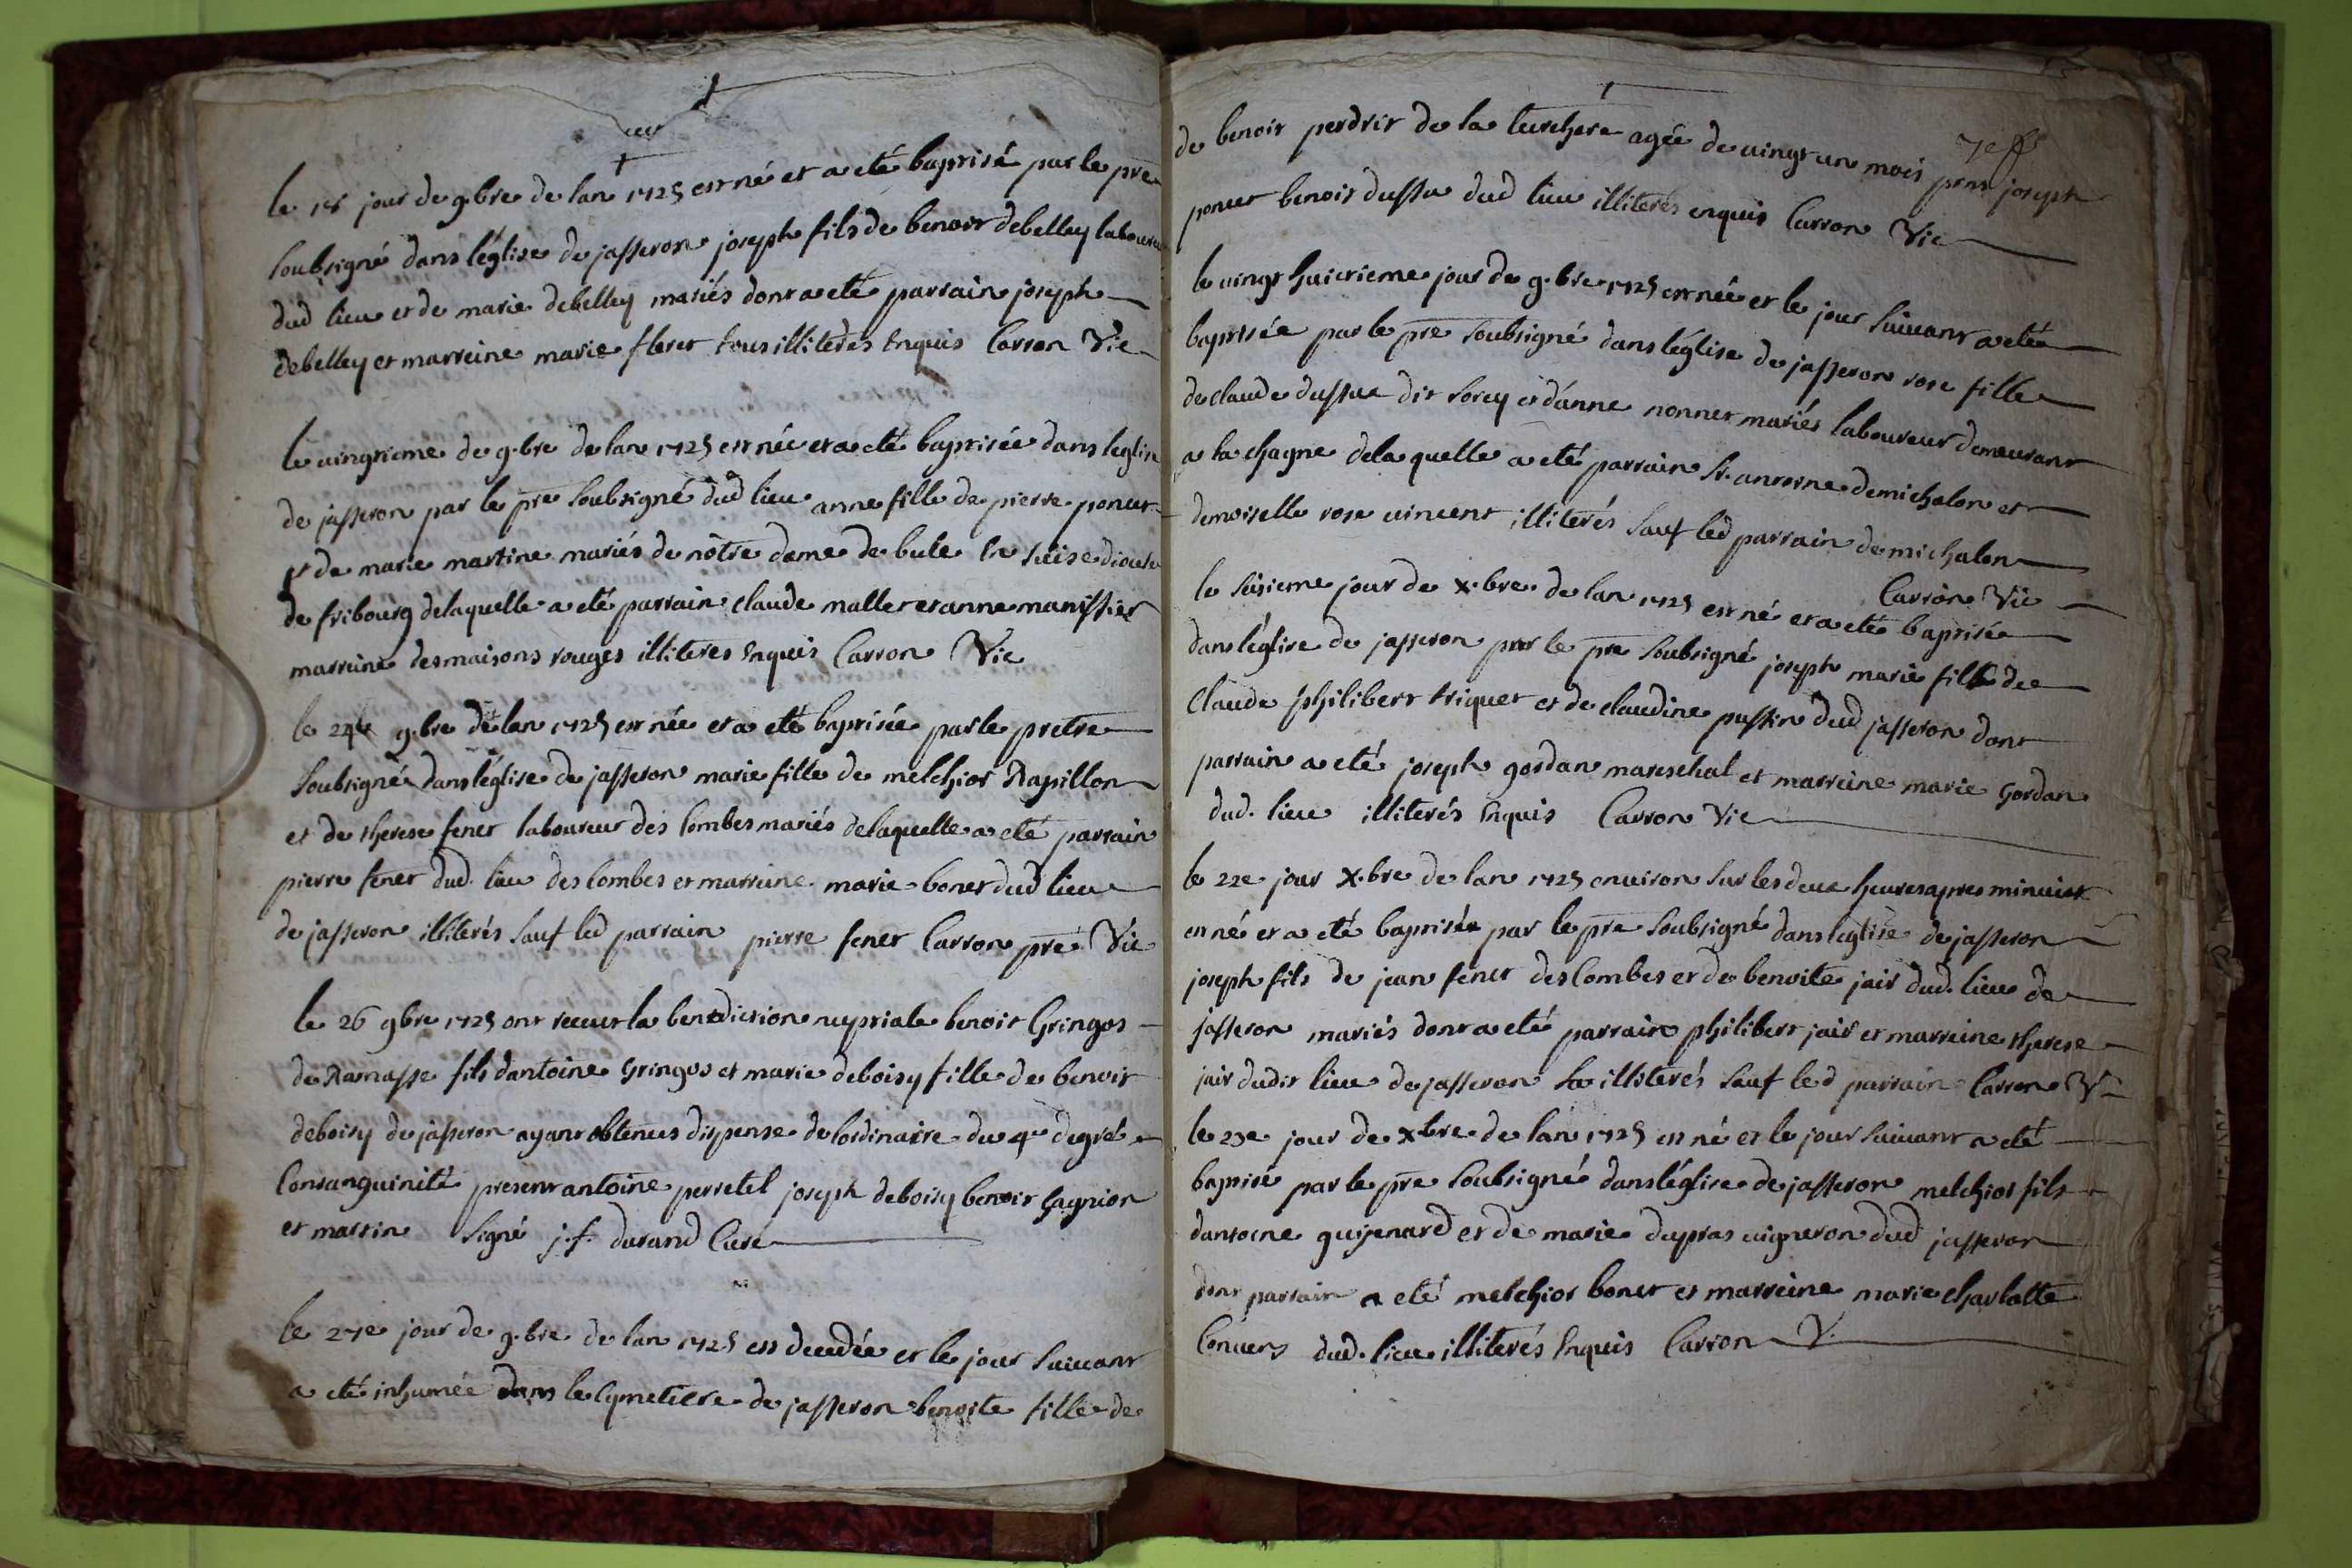 le 18 jour de 9.bre de lan 1725 est né et a eté baptisé par le pre
soubsigné dans léglise de jasseron joseph fils de benoit debelley laboureur
dud lieu et de marie debelley mariés dont a eté parrain joseph
debelley et marreine marie floret tous illiterés Enquis Carron Vic
le vingtieme de 9.bre de lan 1725 est née et a eté baptisée dans leglise
de jasseron par le pre soubsigné dud lieu anne fille de pierre poncet
et de marie martine mariés de nôtre dame de bule En suise diocese
de fribourg delaquelle a eté parrain claude mallet et anne manissier
marreine des maisons rouges illiteres Enquis Carron Vic
le 24e 9.bre de lan 1725 est née et a eté baptisée par le pretre
soubsigné dans léglise de jasseron marie fille de melchior Rapillon
et de therese fenet laboureur des Combes mariés delaquelle a eté parrain
pierre fenet dud. lieu des Combes et marreine marie bonet dud lieu
de jasseron illiterés sauf led parrain pierre fenet Carron pre Vic
le 26 9bre 1725 ont receu la benediction nuptiale benoit Gringos
de Ramasse fils dantoine Gringos et marie deboisy fille de benoit
deboisy de jasseron ayant obtenus dispense de lordinaire du 4e degré
Consanguinité present antoine perretel joseph deboisy benoit Gagnion
et martin signé j.f. durand Curé
le 27e jour de 9.bre de lan 1725 est decedée et le jour suivant
a eté inhumée dans le Cymetiere de jasseron benoite fille de
de benoit perdrix de la teuchere agée de vingt un mois pnts joseph
poncet benoit dussu dud lieu illiterés enquis Carron Vic
le vingt huictieme jour de 9.bre 1725 est née et le jour suivant a eté
baptisée par le pre soubsigné dans léglise de jasseron rose fille
de claude dussu dit sorey et d'anne nonnet mariés laboureur demeurant
a la chagne delaquelle a eté parrain Sr. antoine demichalon et
demoiselle rose vincent illiterés sauf led parrain demichalon
Carron Vic
le sisieme jour de X.bre de lan 1725 est né et a eté baptisée
dans léglise de jasseron par le pre soubsigné joseph marie fille de
Claude philibert triquet et de claudine pussin dud jasseron dont
parrain a eté joseph gordan mareschal et marreine marie Gordan
dud. lieu illiterés Enquis Carron Vic
le 22e jour X.bre de lan 1725 environ sur les deux heures apres minuict
est né et a eté baptisée par le pre soubsigné dans leglise de jasseron
joseph fils de jean fenet des Combes et de benoite jair dud. lieu de
jasseron mariés dont a eté parrain philibert jair et marreine therese
jair dudit lieu de jasseron illiterés sauf led parrain Carron V
le 23e jour de Xbre de lan 1725 est né et le jour suivant a eté
baptisé par le pre soubsigné dans léglise de jasseron melchior fils
dantoine guijenard et de marie dupras vigneron dud jasseron
dont parrain a eté melchior bonet et marreine marie charlotte
Convers dud. lieu illiterés Enquis Carron V.